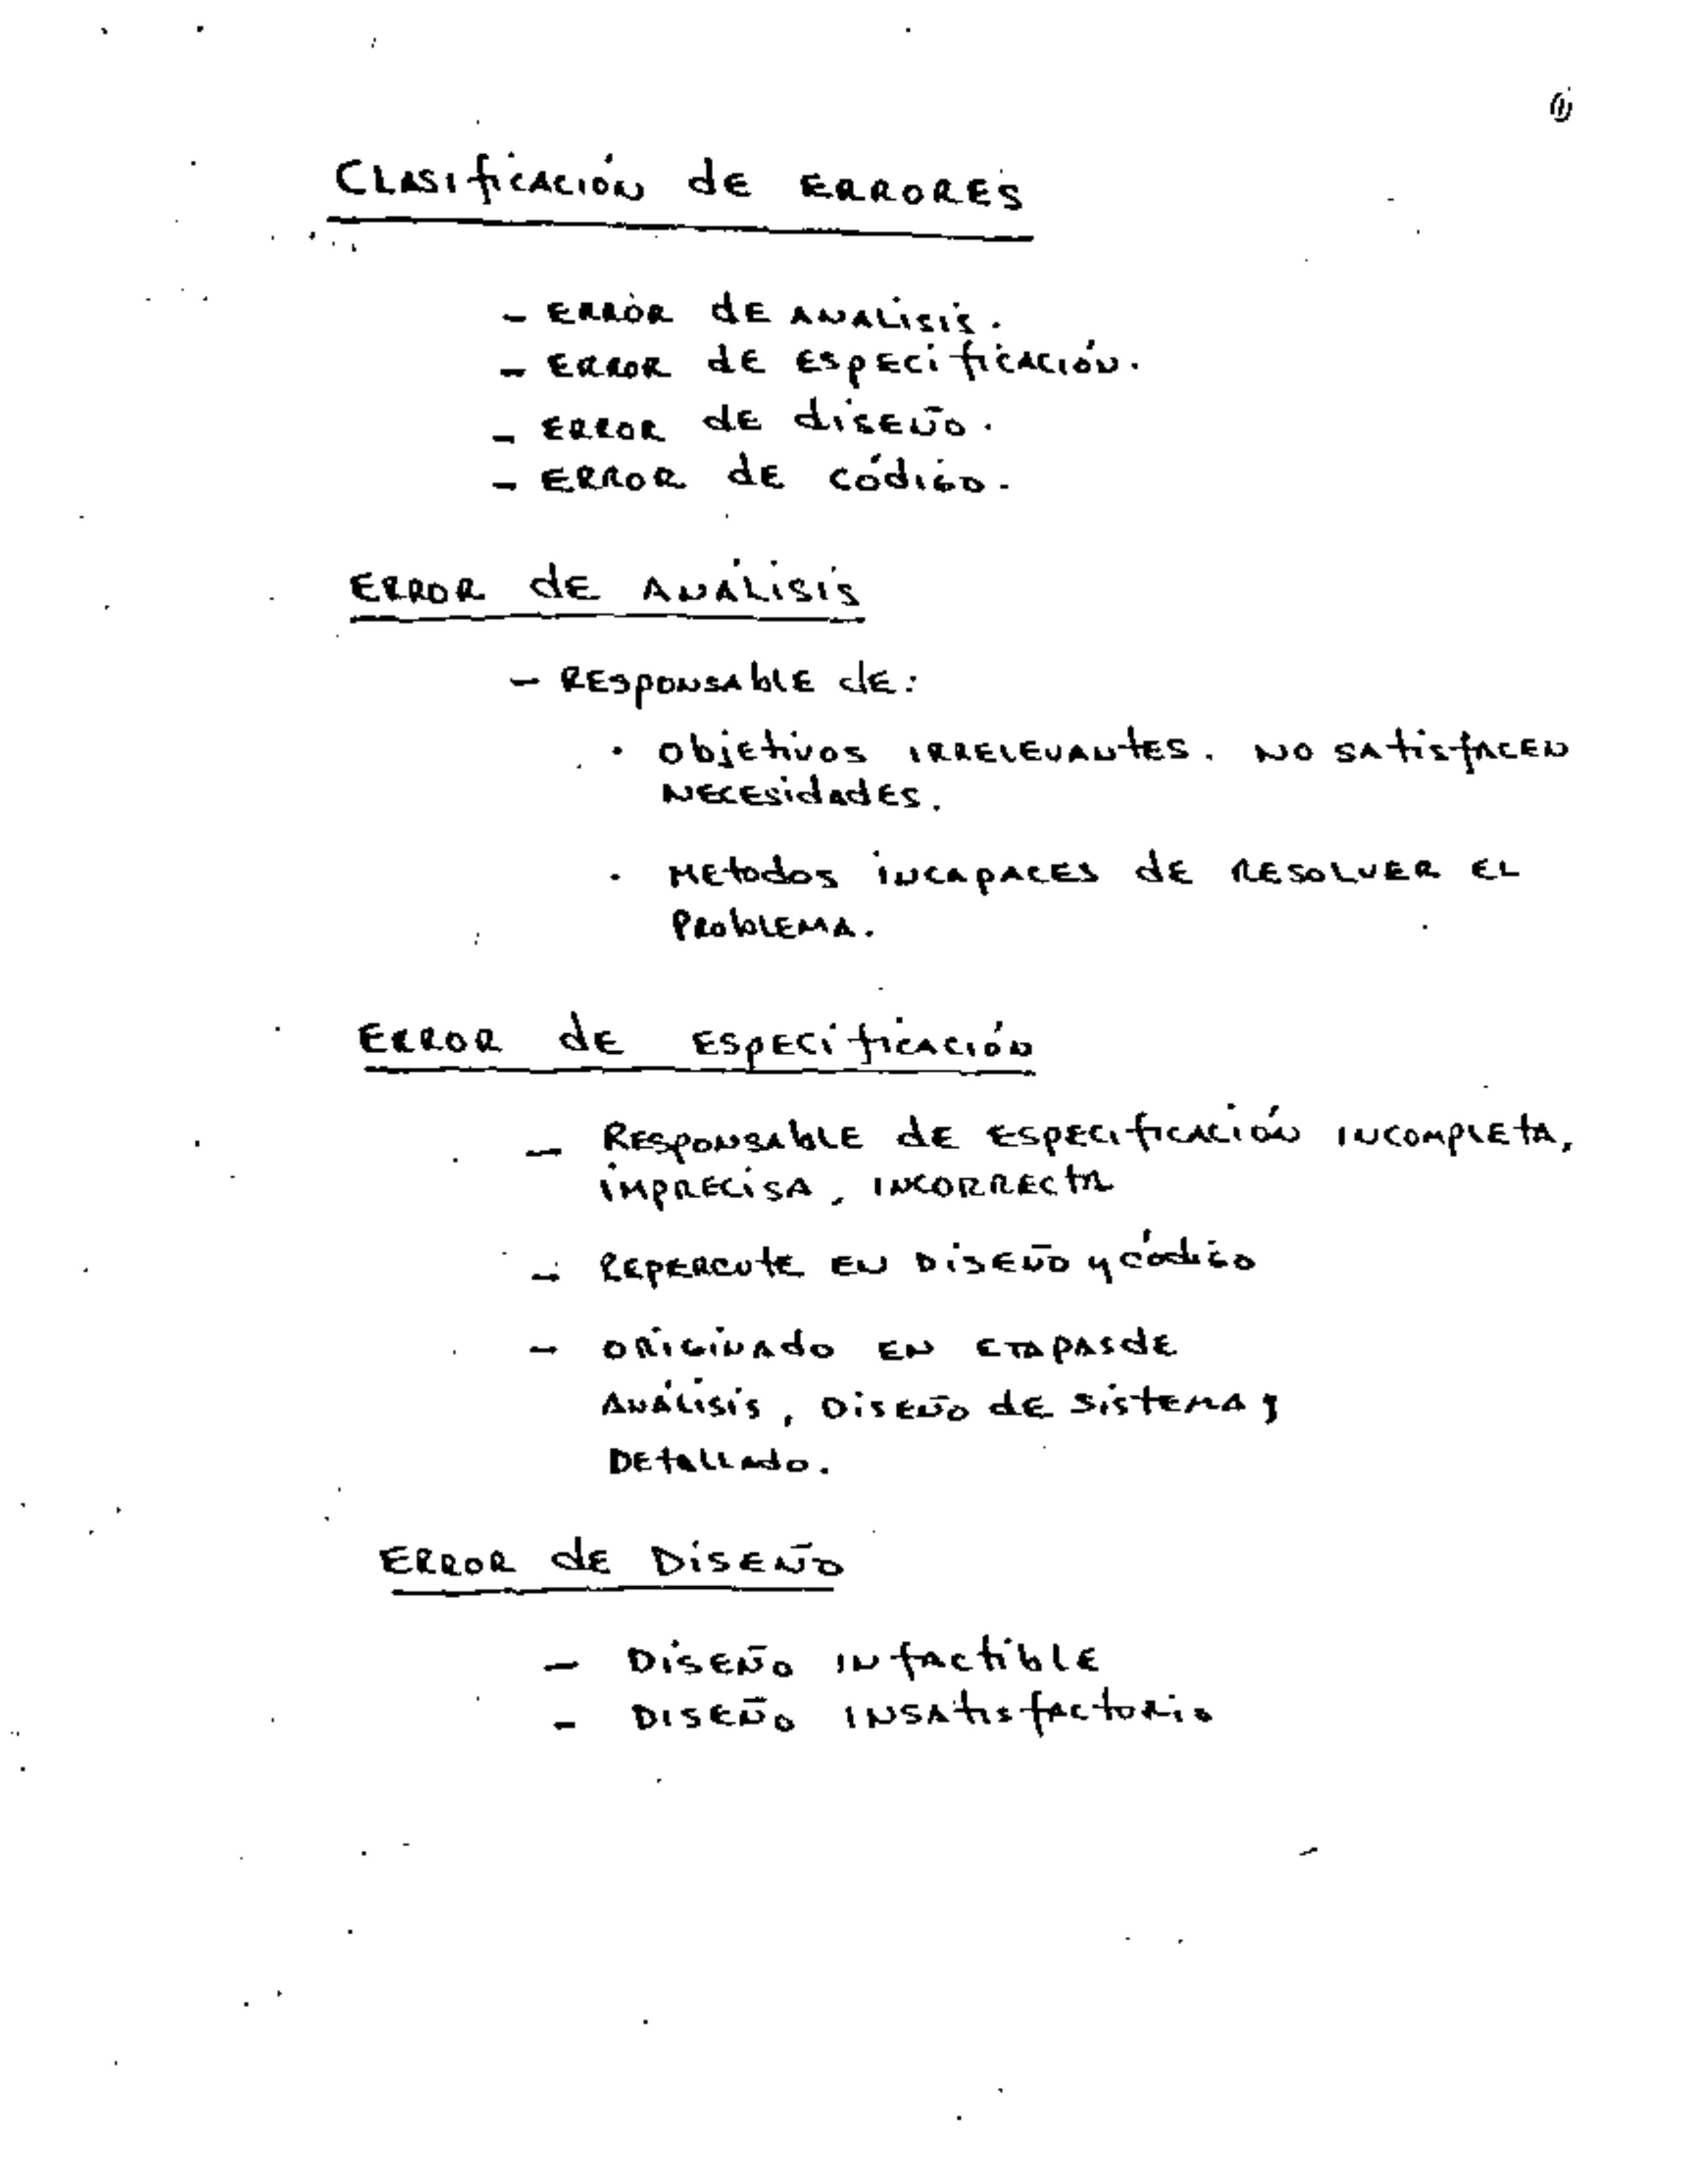 Clasificación de errores
- Error de analisis.
- Error de especificación.
- Error de diseño.
- Error de código.
Error de Análisis
- Responsable de:
· Objetivos irrelevantes. No satisfacen
necesidades.
· Metodos incapaces de resolver el
problema.
Error de especificación
- Responsable de especificación incompleta,
imprecisa, incorrecta
- Repercute en Diseño y código
- Originado en etapas de
Análisis, Diseño de sistema y
Detallado.
Error de Diseño
- Diseño infactible
- Diseño insatisfactorio